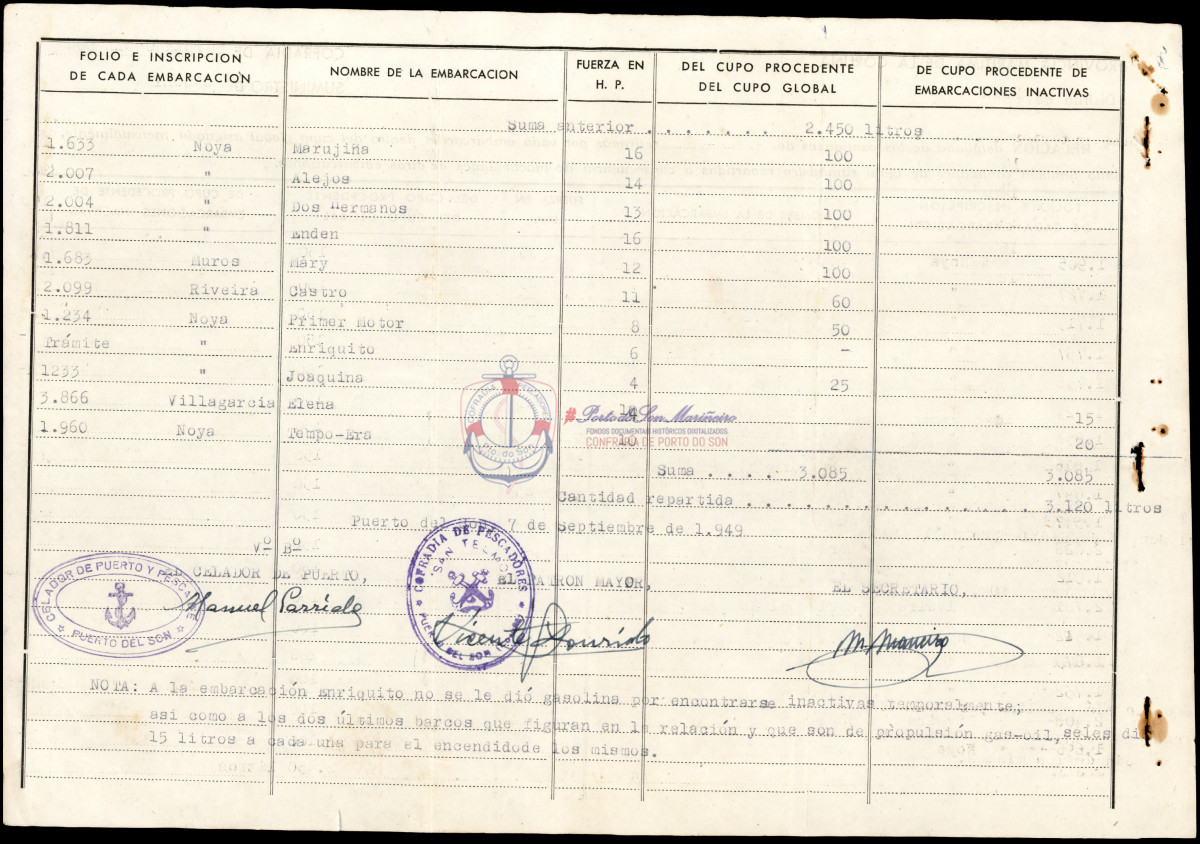 FOLIO E INSCRIPCION DE CADA EMBARCACION | NOMBRE DE LA EMBARCACION | FUERZA EN H. P. | DEL CUPO PROCEDENTE DEL CUPO GLOBAL | DE CUPO PROCEDENTE DE EMBARCACIONES INACTIVAS
Suma anterior . . . . . . . 2.450 litros
1.633 Noya Marujiña 16 100
2.007 " Alejos 14 100
2.004 " Dos Hermanos 13 100
1.811 " Enden 16 100
1.683 Muros Mary 12 100
2.099 Riveira Castro 11 60
1.234 Noya Primer Motor 8 50
Trámite " Enriquito 6 -
1233 " Joaquina 4 25
3.866 Villagarcia Elena 14 15
1.960 Noya Tempo-Era 10 20
Suma . . . . 3.085 3.085
Cantidad repartida . . . . . . . . . . . . . . . . 3.120 litros
Puerto del Son, 7 de Septiembre de 1.949
Vº Bº
EL CELADOR DE PUERTO, El PATRON MAYOR, EL SECRETARIO,
Manuel Parride
Vicente
CELADOR DE PUERTO Y PESCA
PUERTO DEL SON
COFRADIA DE PESCADORES
SAN TELMO
PUERTO DEL SON
COFRADIA PESCADORES
Pto. do Son
#Porto do Son Mariñeiro
FONDOS DOCUMENTAIS HISTÓRICOS DIGITALIZADOS
CONFRARÍA DE PORTO DO SON
NOTA: A la embarcación Enriquito no se le dió gasolina por encontrarse inactivas temporalmente,
asi como a los dos últimos barcos que figuran en la relación y que son de propulsión gas-oil, seles di
15 litros a cada una para el encendidode los mismos.